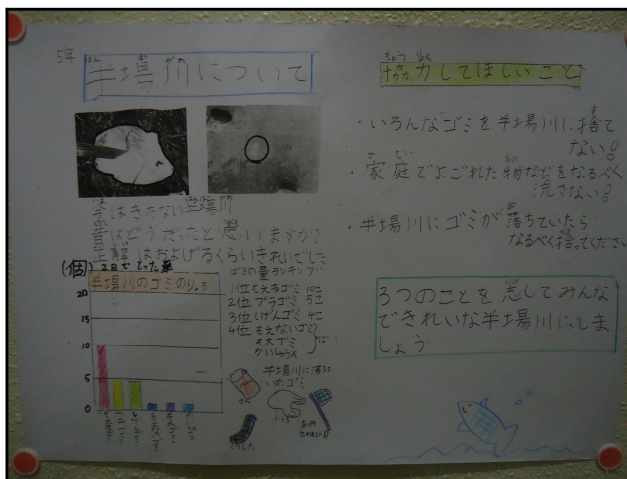 5年
半場川について
今はきたない半場川
昔はどうだったと思いますか?
正解はおよげるくらいきれいでした
(個) 2日でとった量
半場川のゴミのりょう
20
15
10
5
0
ゴミの量ランキング
1位もえるゴミ 10こ
2位 プラゴミ 5こ
3位 しげんゴミ 4こ
4位 もえないゴミ
そ大ゴミ
かいしゅう×
半場川に落ちていたゴミ
くつした
協力してほしいこと
きょうりょく
・いろんなゴミを半場川に捨て
ない!
・家庭でよごれた物などをなるべく
流さない!
・半場川にゴミが落ちていたら
なるべく拾ってください
3つのことを意してみんな
できれいな半場川にしま
しょう